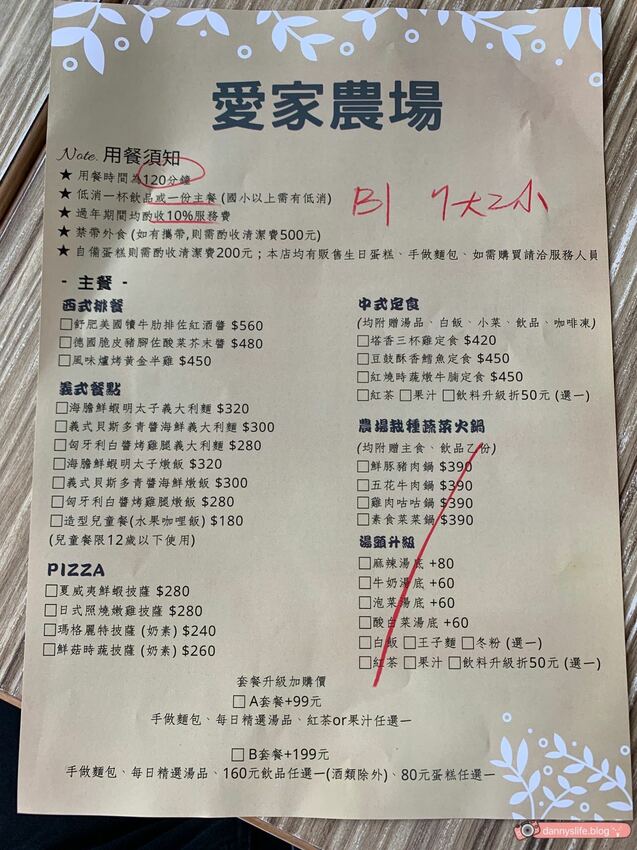 愛家農場
Note. 用餐須知
★ 用餐時間為120分鐘
★ 低消一杯飲品或一份主餐 (國小以上需有低消)
★ 過年期間均酌收10%服務費
★ 禁帶外食 (如有攜帶,則需酌收清潔費500元)
★ 自備蛋糕則需酌收清潔費200元；本店均有販售生日蛋糕、手做麵包、如需購買請洽服務人員
B1 7大2小
- 主餐 -
西式排餐
□舒肥美國犢牛肋排佐紅酒醬 $560
□德國脆皮豬腳佐酸菜芥末醬 $480
□風味爐烤黃金半雞 $450
義式餐點
□海膽鮮蝦明太子義大利麵 $320
□義式貝斯多青醬海鮮義大利麵 $300
□匈牙利白醬烤雞腿義大利麵 $280
□海膽鮮蝦明太子燉飯 $320
□義式貝斯多青醬海鮮燉飯 $300
□匈牙利白醬烤雞腿燉飯 $280
□造型兒童餐(水果咖哩飯) $180
(兒童餐限12歲以下使用)
PIZZA
□夏威夷鮮蝦披薩 $280
□日式照燒嫩雞披薩 $280
□瑪格麗特披薩 (奶素) $240
□鮮菇時蔬披薩 (奶素) $260
中式定食
(均附贈湯品、白飯、小菜、飲品、咖啡凍)
□塔香三杯雞定食 $420
□豆豉酥香鱈魚定食 $450
□紅燒時蔬燉牛腩定食 $450
□紅茶 □果汁 □飲料升級折50元 (選一)
農場栽種蔬菜火鍋
(均附贈主食、飲品乙份)
□鮮豚豬肉鍋 $390
□五花牛肉鍋 $390
□雞肉咕咕鍋 $390
□素食菜菜鍋 $390
湯頭升級
□麻辣湯底 +80
□牛奶湯底 +60
□泡菜湯底 +60
□酸白菜湯底 +60
□白飯 □王子麵 □冬粉 (選一)
□紅茶 □果汁 □飲料升級折50元 (選一)
套餐升級加購價
□ A套餐+99元
手做麵包、每日精選湯品、紅茶or果汁任選一
□ B套餐+199元
手做麵包、每日精選湯品、160元飲品任選一(酒類除外)、80元蛋糕任選一
dannyslife.blog